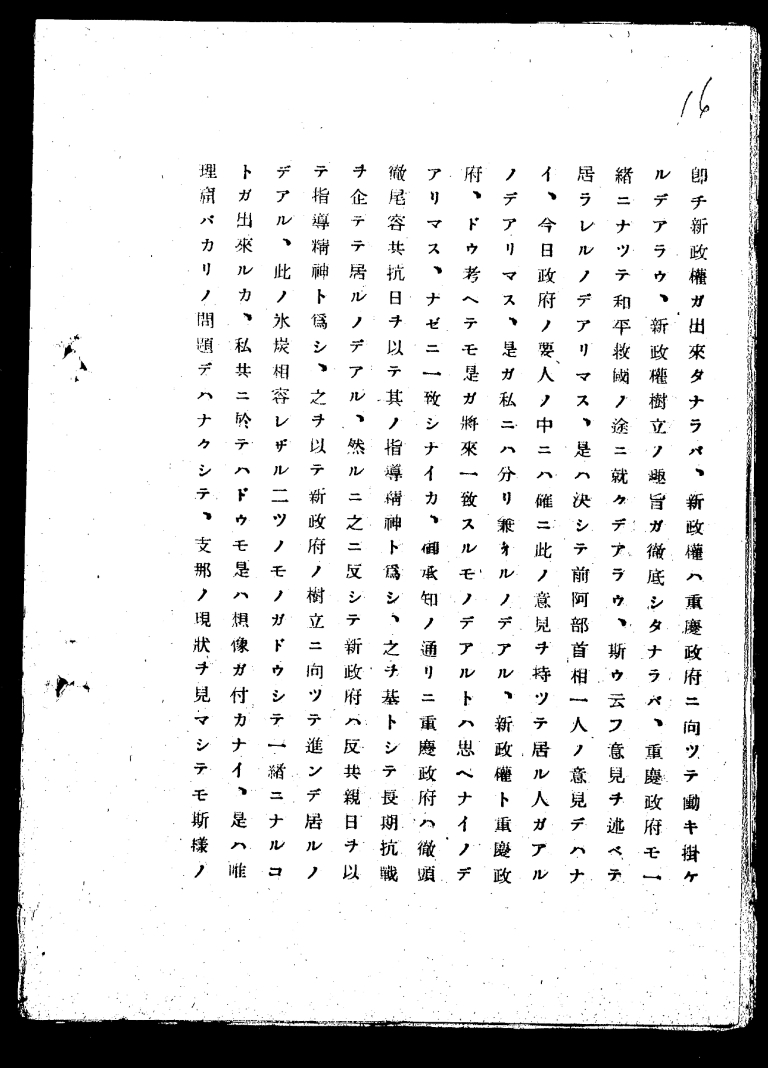 16
卽チ新政權ガ出來タナラバ、新政權ハ重慶政府ニ向ツテ働キ掛ケ
ルデアラウ、新政權樹立ノ趣旨ガ徹底シタナラバ、重慶政府モ一
緒ニナツテ和平救國ノ途ニ就クデアラウ、斯ウ云フ意見ヲ述ベテ
居ラレルノデアリマス、是ハ決シテ前阿部首相一人ノ意見デハナ
イ、今日政府ノ要人ノ中ニハ確ニ此ノ意見ヲ持ツテ居ル人ガアル
ノデアリマス、是ガ私ニハ分リ兼ネルノデアル、新政權ト重慶政
府、ドウ考ヘテモ是ガ將來一致スルモノデアルトハ思ヘナイノデ
アリマス、ナゼニ一致シナイカ、御承知ノ通リニ重慶政府ハ徹頭
徹尾容共抗日ヲ以テ其ノ指導精神ト爲シ、之ヲ基トシテ長期抗戰
ヲ企テテ居ルノデアル、然ルニ之ニ反シテ新政府ハ反共親日ヲ以
テ指導精神ト爲シ、之ヲ以テ新政府ノ樹立ニ向ツテ進ンデ居ルノ
デアル、此ノ氷炭相容レザル二ツノモノガドウシテ一緒ニナルコ
トガ出來ルカ、私共ニ於テハドウモ是ハ想像ガ付カナイ、是ハ唯
理窟バカリノ問題デハナクシテ、支那ノ現狀ヲ見マシテモ斯樣ノ